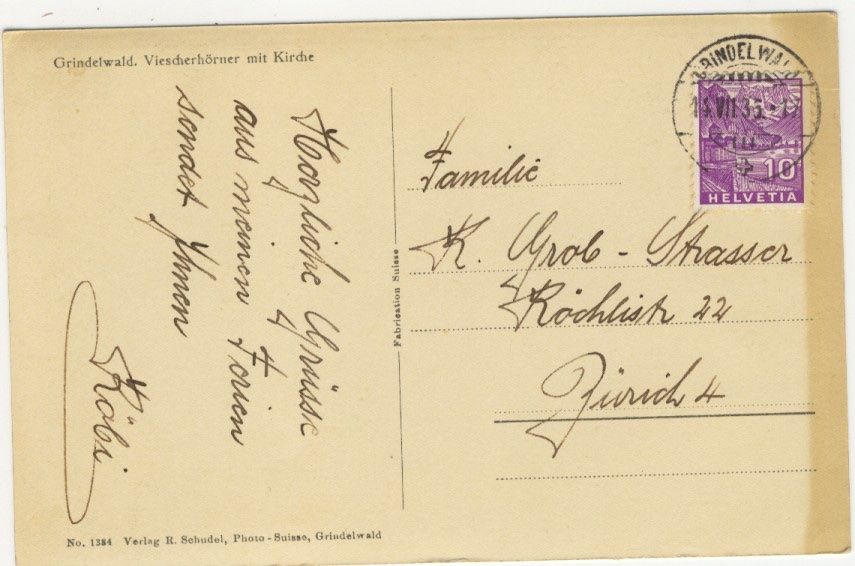 Grindelwald. Viescherhörner mit Kirche
Herzliche Grüsse
aus meinen Ferien
sendet Ihnen
Köbi
No. 1384 Verlag R. Schudel, Photo-Suisse, Grindelwald
Fabrication Suisse
GRINDELWALD
VII.35
10
HELVETIA
Familie
K. Grob - Strasser
Köchlistr 22
Zürich 4